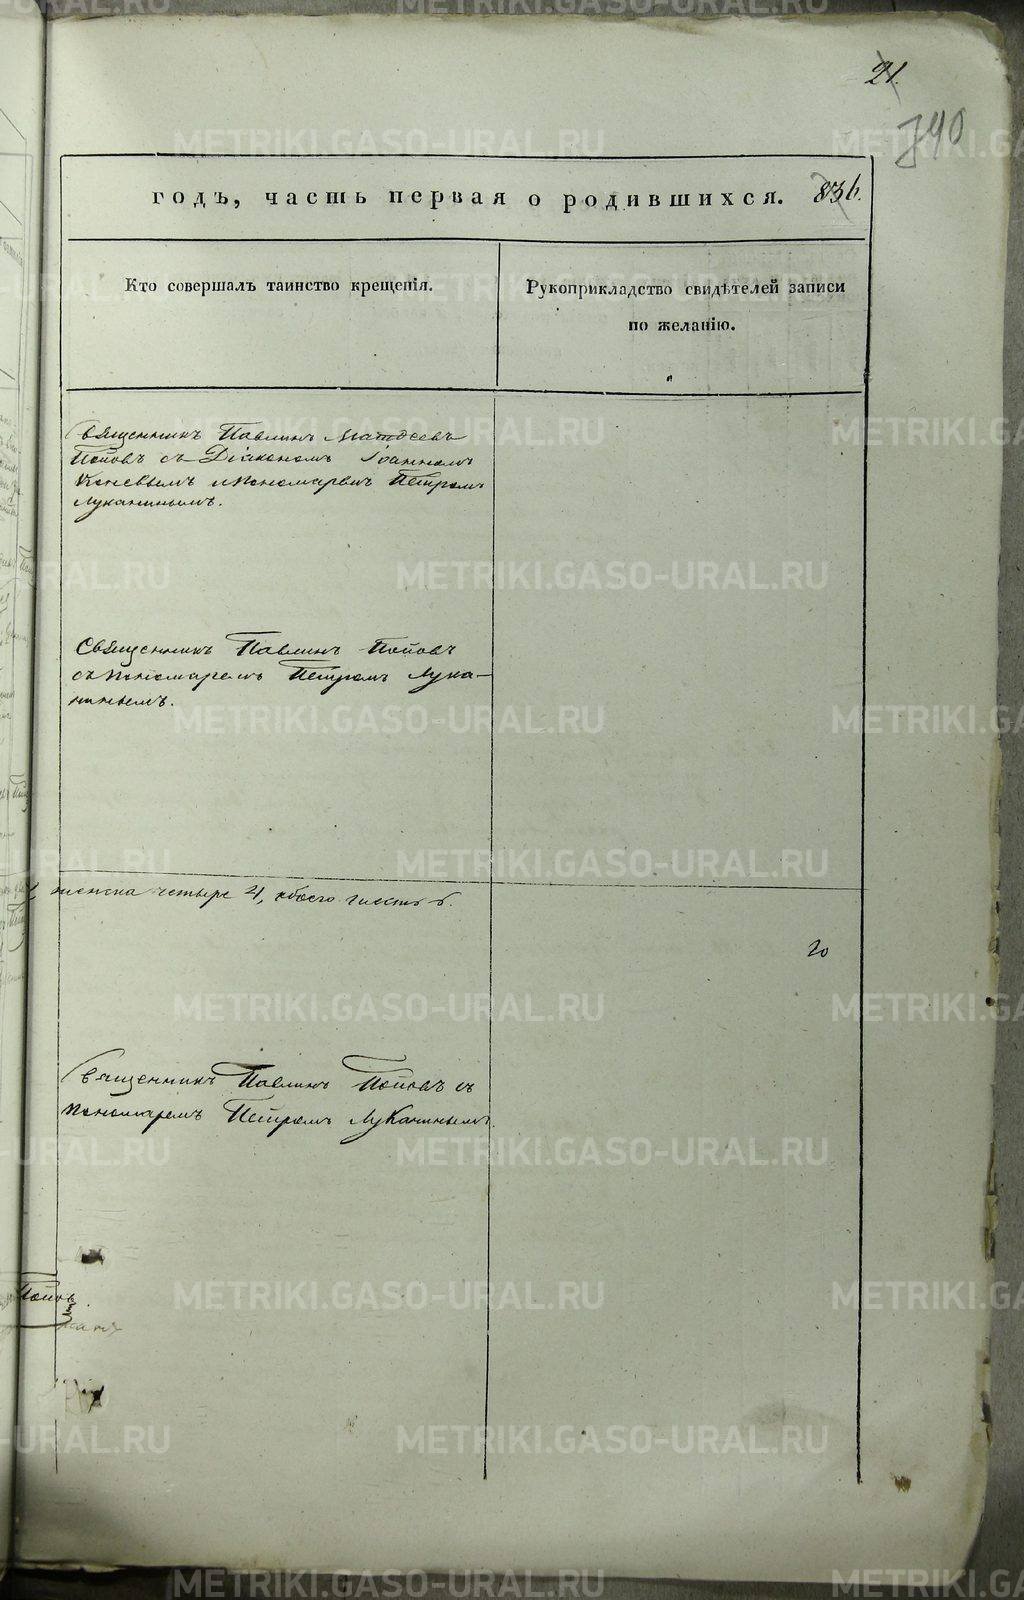 21.
740
годъ, часть первая о родившихся. 836.
Кто совершалъ таинство крещенія.
Рукоприкладство свидѣтелей записи
по желанію.
Священникъ Павлинъ Матфеевъ
Поповъ съ Діакономъ Іоанномъ
Коневымъ и пономаремъ Петромъ
Луканинымъ.
Священникъ Павлинъ Поповъ
съ пономаремъ Петромъ Лука-
нинымъ.
женска четыре 4, обоего шесть 6.
20
Священникъ Павлинъ Поповъ съ
пономаремъ Петромъ Луканинымъ.
Поповъ
METRIKI.GASO-URAL.RU